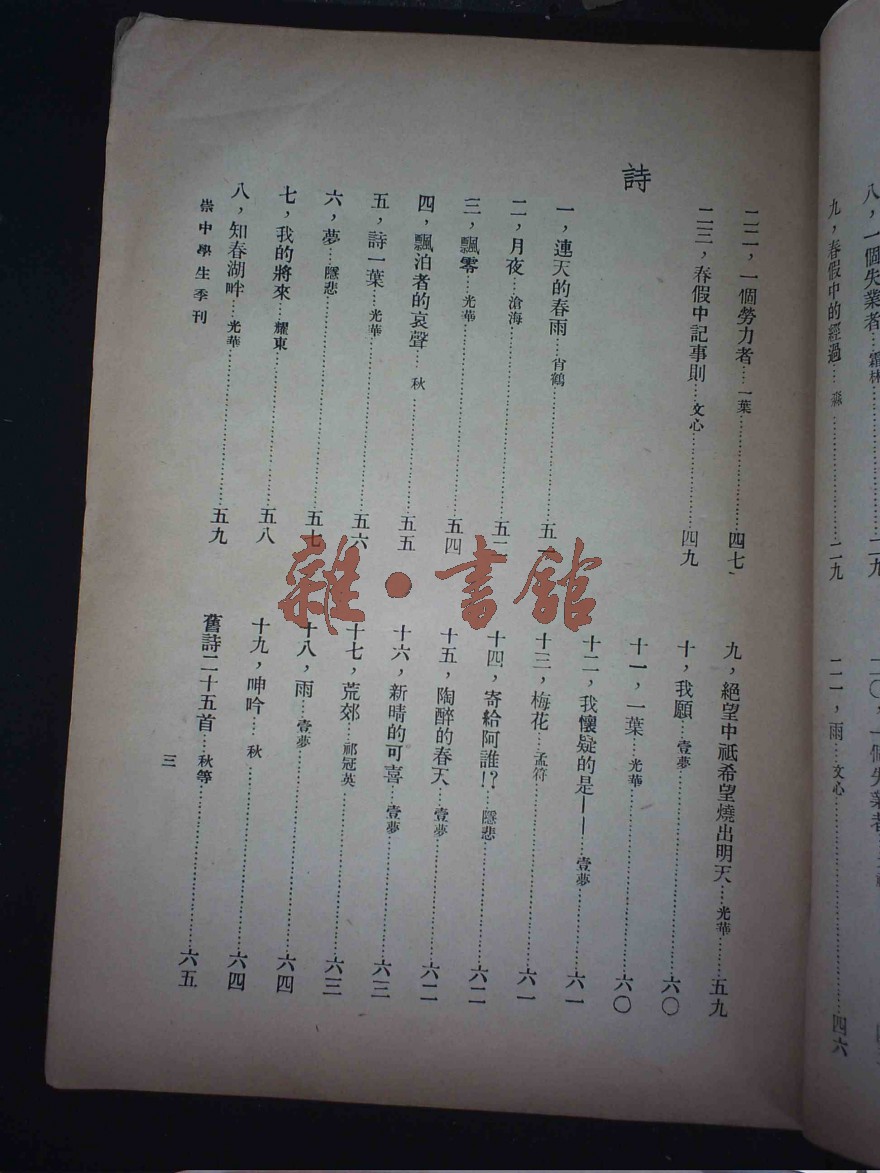 八，一個失業者…霜林…二九
九，春假中的經過…淼…二九
二〇，一個失業者
二一，雨…文心…四六
二二，一個勞力者…一葉…四七
二三，春假中記事則…文心…四九
詩
一，連天的春雨…肖鶴…五一
二，月夜…滄海…五二
三，飄零…光華…五四
四，飄泊者的哀聲…秋…五五
五，詩一葉…光華…五六
六，夢…隱悲…五七
七，我的將來…耀東…五八
八，知春湖畔…光華…五九
崇中學生季刊
九，絕望中祇希望燒出明天…光華…五九
十，我願…壹夢…六〇
十一，一葉…光華…六〇
十二，我懷疑的是——…壹夢…六一
十三，梅花…孟符…六一
十四，寄給阿誰!?…隱悲…六二
十五，陶醉的春天…壹夢…六二
十六，新晴的可喜…壹夢…六三
十七，荒郊…祁冠英…六三
十八，雨…壹夢…六四
十九，呻吟…秋…六四
舊詩二十五首…秋等…六五
三
雜·書館